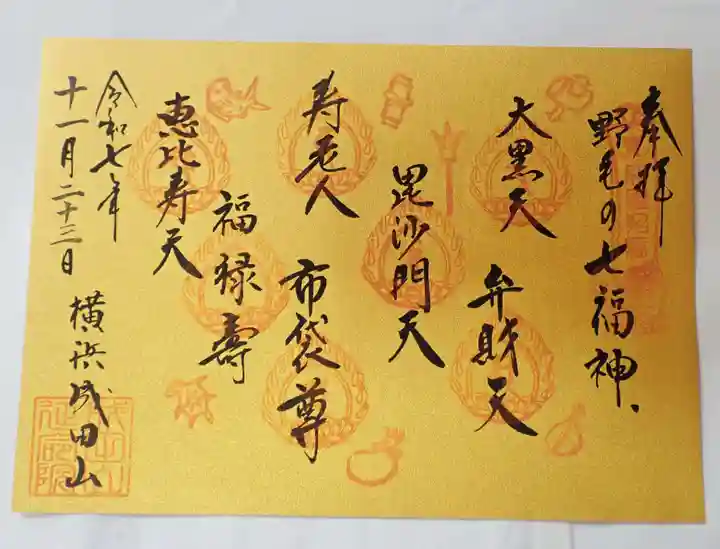 奉拝
野毛の七福神、
大黒天
弁財天
毘沙門天
寿老人
布袋尊
福禄壽
恵比寿天
令和七年
十一月二十三日
横浜成田山